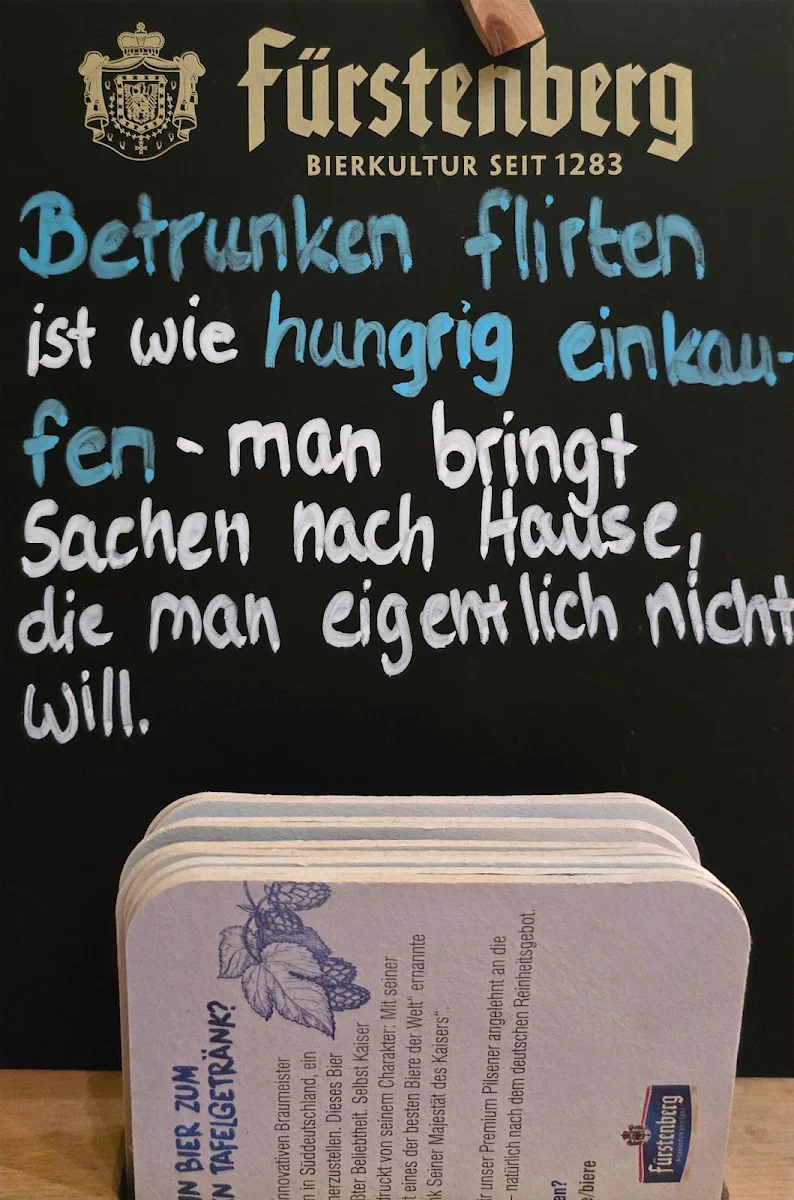 Fürstenberg
BIERKULTUR SEIT 1283
Betrunken flirten
ist wie hungrig einkau-
fen - man bringt
Sachen nach Hause,
die man eigentlich nicht
will.
BIER ZUM
TAFELGETRÄNK?
Braumeister
in Süddeutschland, ein
herzustellen. Dieses Bier
Beliebtheit. Selbst Kaiser
von seinem Charakter: Mit seiner
eines der besten Biere der Welt“ ernannte
Seiner Majestät des Kaisers“.
unser Premium Pilsener angelehnt an die
– natürlich nach dem deutschen Reinheitsgebot.
/biere
Fürstenberg
BIERKULTUR SEIT 1283